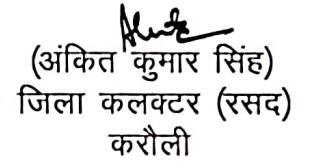 (अंकित कुमार सिंह)
जिला कलक्टर (रसद)
करौली